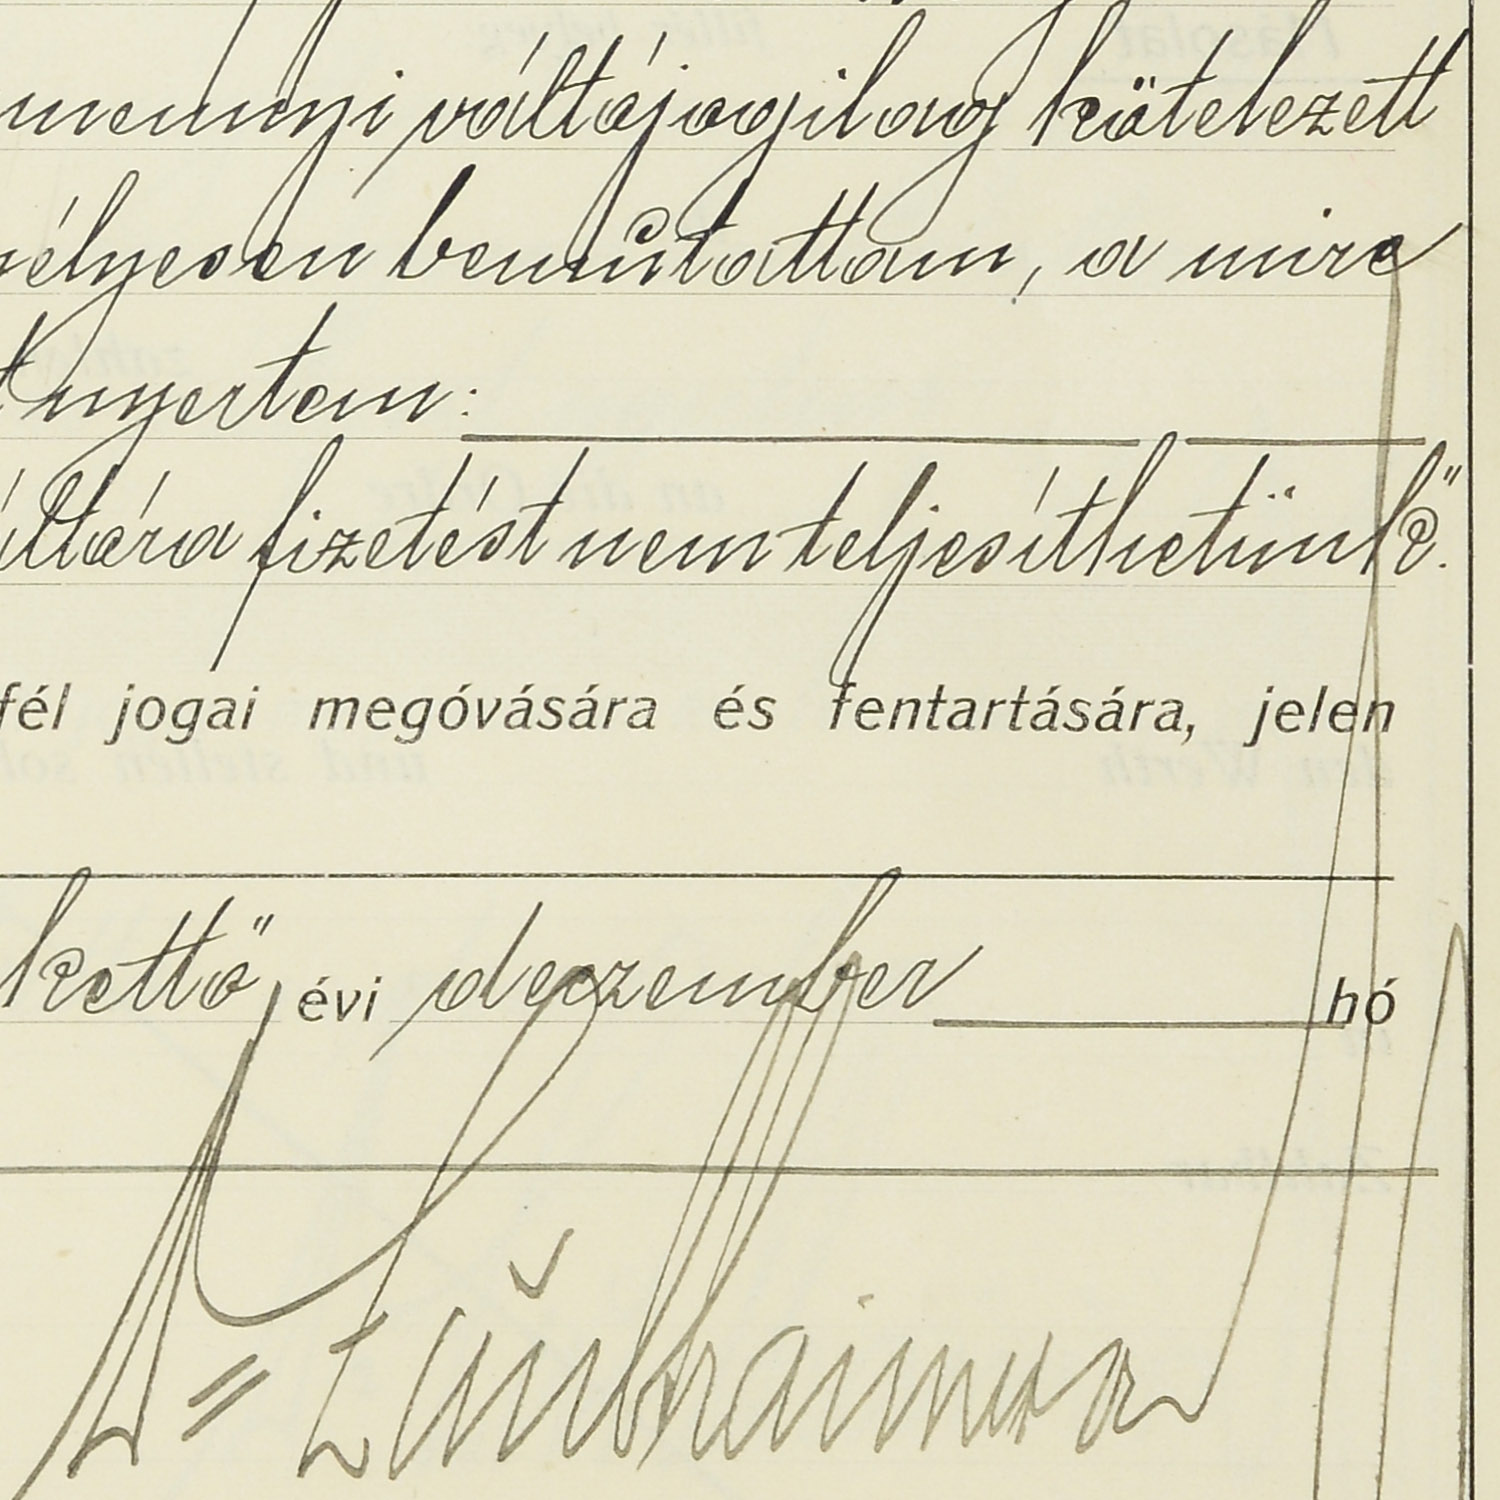 mennyi váltójogilag kötelezett
mélyesen bemutattam, a mire
t nyertem:
váltóra fizetést nem teljesíthetünk".
fél jogai megóvására és fentartására, jelen
kettő évi deczember hó